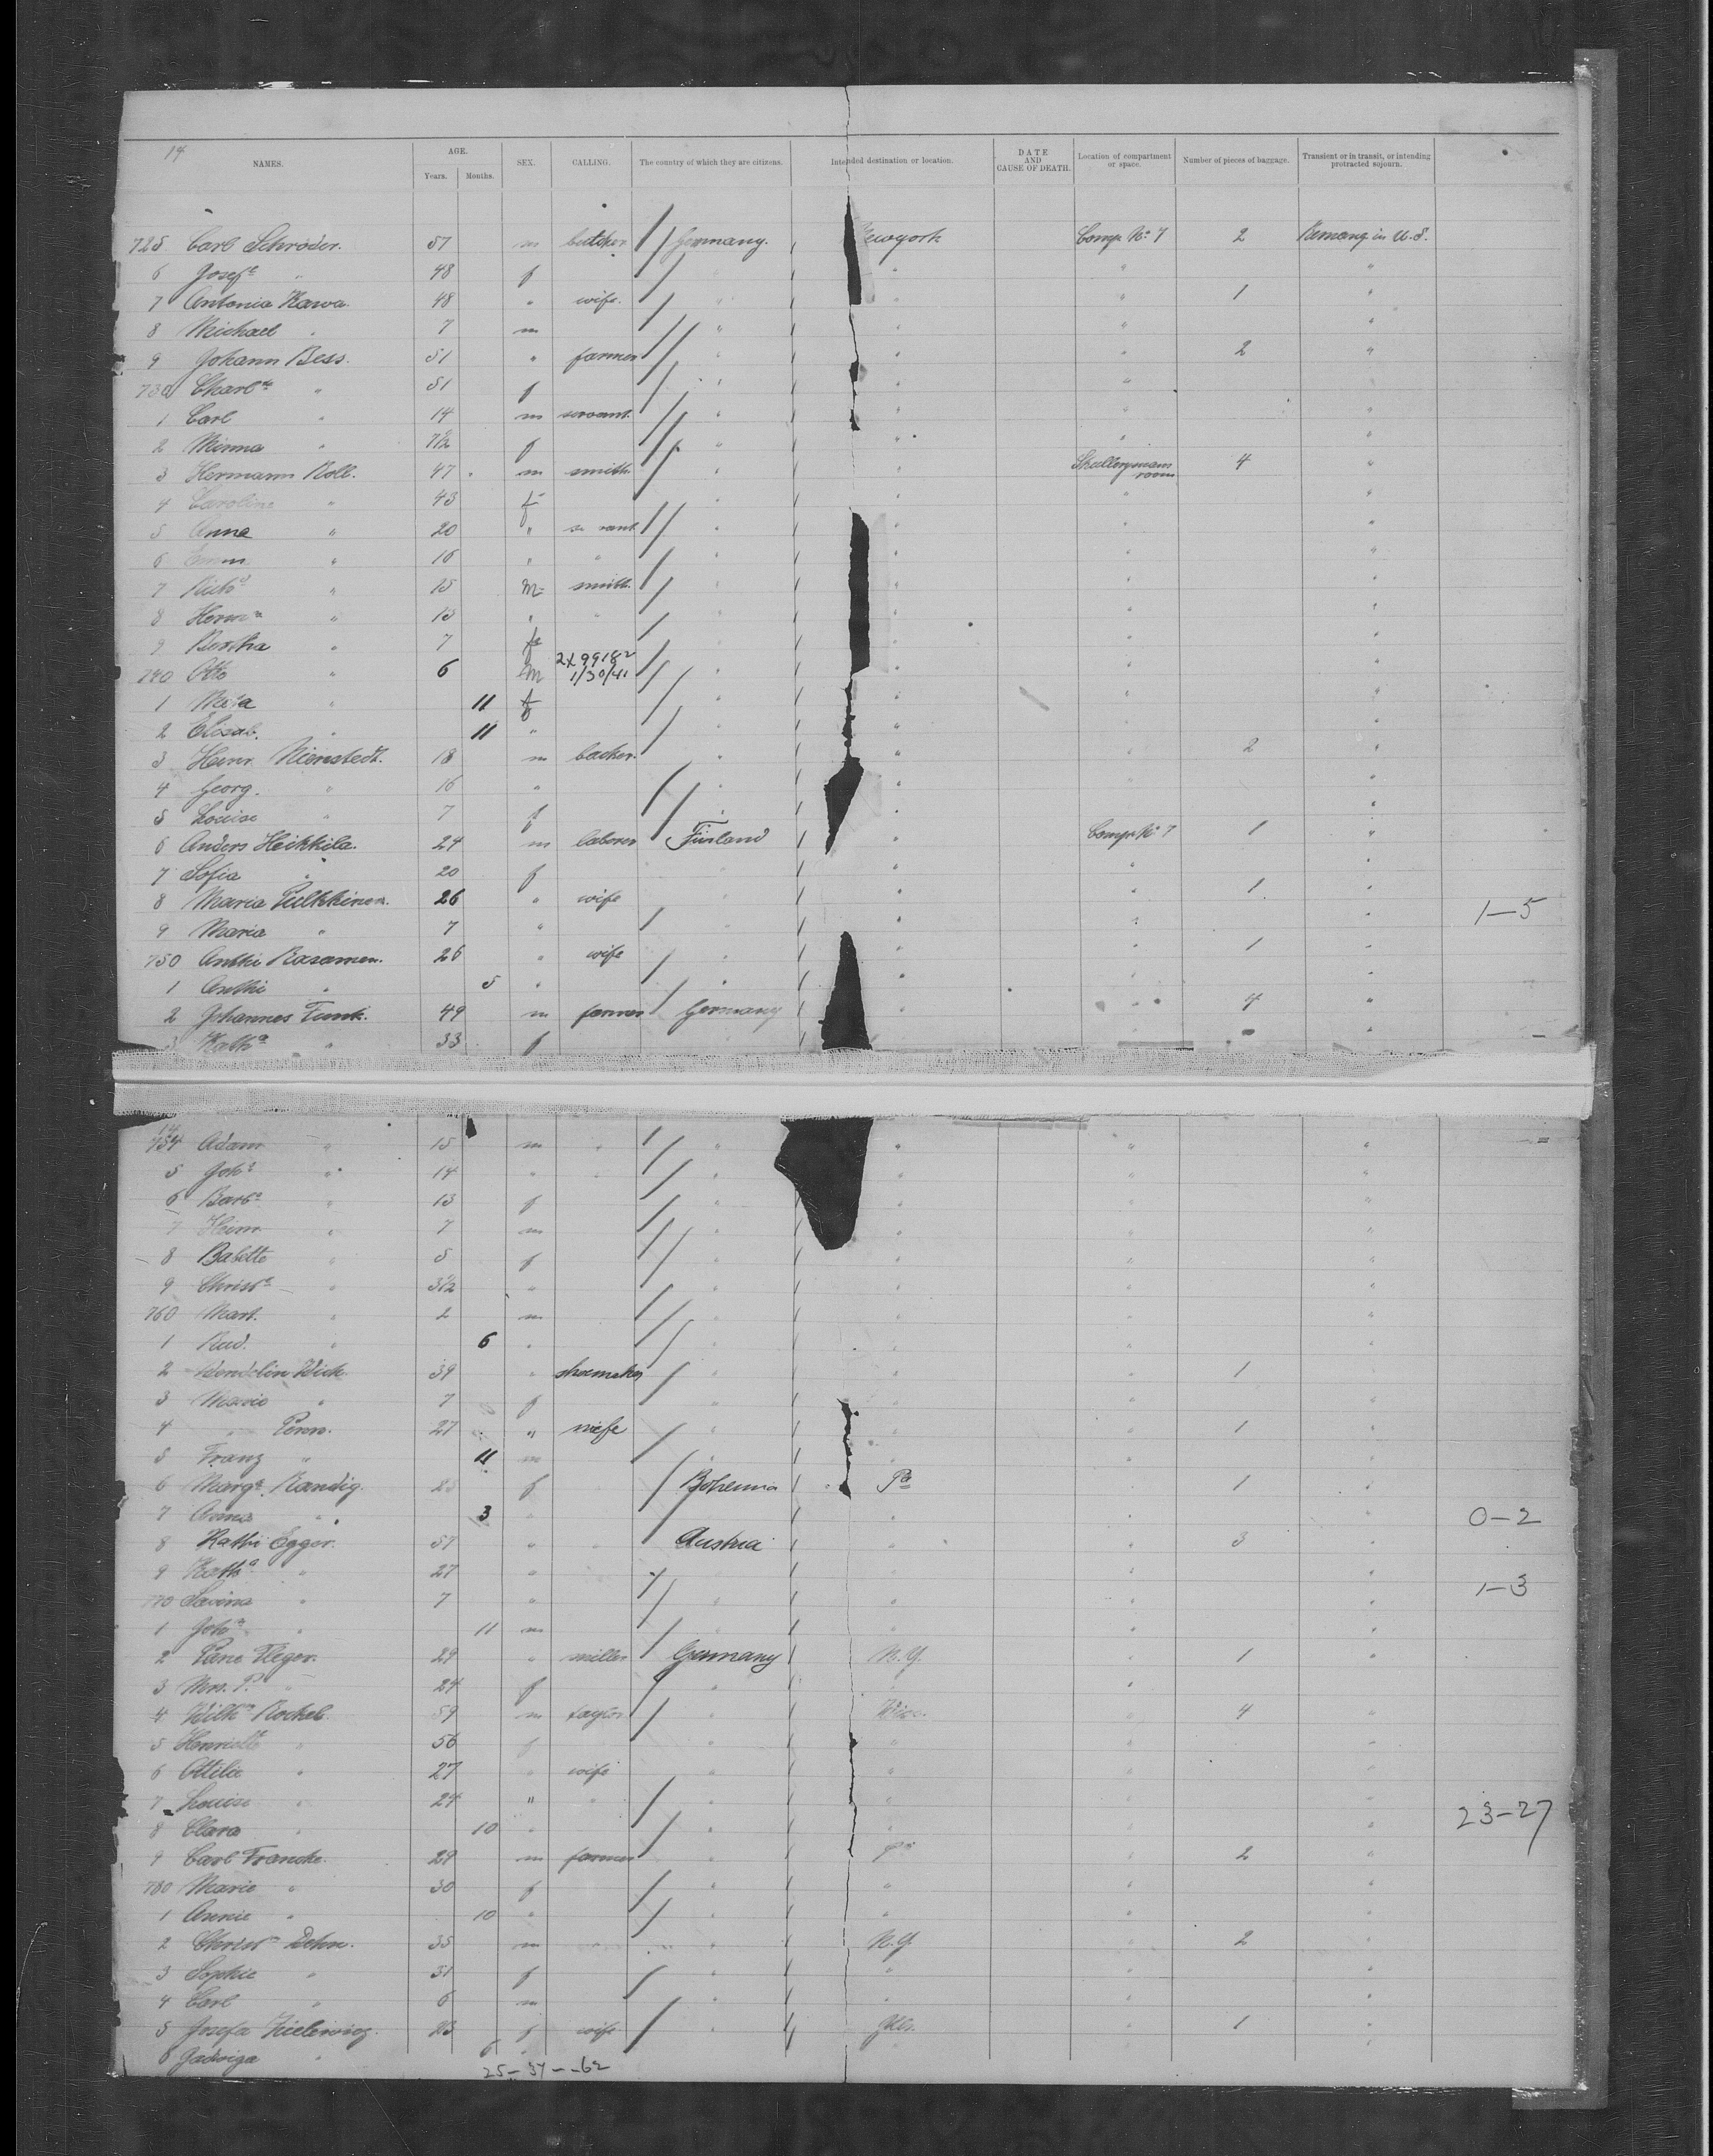 14
NAMES. AGE. Years. Months. SEX. CALLING. The country of which they are citizens. Intended destination or location. DATE AND CAUSE OF DEATH. Location of compartment or space. Number of pieces of baggage. Transient or in transit, or intending protracted sojourn.
725 Carl Schröder. 57 m butcher Germany. Newyork Comp. No 7 2 in U.S.
6 Josefa " 48 f " " "
7 Antonia Kawa. 48 " wife. " " " 1 "
8 Michael " 7 m " " " "
9 Johann Bess. 51 " farmer " " " 2 "
730 Charlte " 51 f " " " "
1 Carl " 14 m servant. " " " "
2 Minna " 7½ f " " " "
3 Hermann Koll. 47 m smith. " " room 4 "
4 Caroline " 43 f " " "
5 Anna " 20 " " " " "
6 " 16 " " " " "
7 Richd " 15 m smith. " " "
8 Herma " 13 " " " " "
9 Bertha " 7 f " " "
2X99182
740 Otto " 6 m 1/30/41 " " " "
1 Meta " 11 f " " " "
2 Elisab. " 11 " " " "
3 Heinr. Nienstedt. 18 m backer. " " " 2 "
4 Georg. " 16 " " " " "
5 Louise " 7 f " " "
6 Anders Heikkila. 24 m laborer Finland " Comp. No 7 1 "
7 Sofia " 20 f " " " "
8 Maria Pulkkinen. 26 " wife " " " 1 "
9 Maria " 7 " " " " " 1–5
750 Antti Rasamen. 26 " wife " " " 1 "
1 Antti " 5 " " " " "
2 Johannes Funk. 49 m farmer Germany " " 4 "
3 Katha " 33 f "
14
754 Adam " 15 m " " " " "
5 Joha " 14 " " " " " "
6 Barba " 13 f " " " "
7 Heinr. " 7 m " " " "
8 Babette " 5 f " " " "
9 Christa " 3½ " " " " "
760 Mart. " 2 m " " " "
1 Rud. " 6 " " " " "
2 Wendelin Wick 39 " shoemaker " " " 1 "
3 Marie " 7 f " " " "
4 " Penn. 27 " wife " " " 1 "
5 Franz " 11 m " " " "
6 Marga Kandig. 23 f Bohemia Pa " 1 "
7 Anna " 3 " " " " 0–2
8 Kathi Egger. 57 " Austria " " 3 "
9 Katha " 27 " " " 1–3
770 Savina " 7 " " " " "
1 Joha " 11 m " " " "
2 29 " miller Germany N.Y. " 1 "
3 Mrs. P. " 24 f " " "
4 Wilhm Rockel. 59 m taylor. " Wisc. " 4 "
5 Henriette " 56 f " " " "
6 Ottilie " 27 " wife " " " "
7 Louise " 24 " " " " " " 23–27
8 Clara " 10 " " " " "
9 Carl Francke. 29 m farmer " " 2 "
780 Marie " 30 f " " " "
1 Annie " 10 " " " " "
2 Christn Dehn. 35 m " N.Y. " 2 "
3 Sophie " 31 f " " " "
4 Carl " 6 m " " " "
5 Josefa 23 f wife " Ills. " 1 "
6 Jadwiga " 6
25–37––62